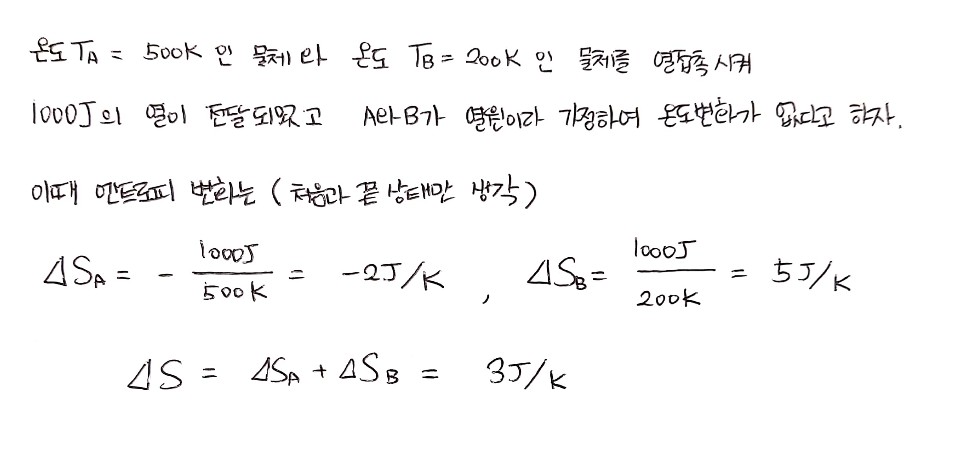 온도 TA = 500K 인 물체와 온도 TB = 200K 인 물체를 열접촉시켜
1000J의 열이 전달되었고 A와B가 열원이라 가정하여 온도변화가 없다고 하자.
이때 엔트로피 변화는 (처음과 끝 상태만 생각)
ΔSA = - 1000J/500K = -2J/K , ΔSB = 1000J/200K = 5J/K
ΔS = ΔSA + ΔSB = 3J/K